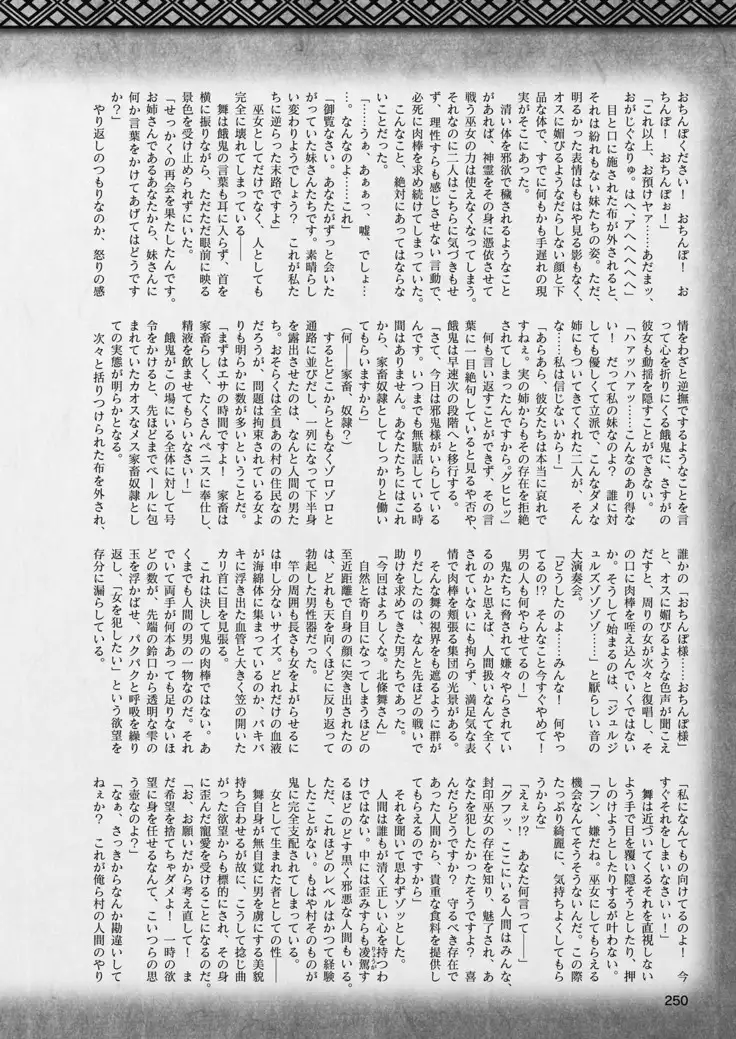 おちんぽください！　おちんぽ！　お
ちんぽ！　おちんぽぉ！」
「これ以上、お預けヤァ……あだまッ、
おがじぐなりゅ。はへ、アヘへへへへ」
　目と口に施された布が外されると、
それは紛れもない妹たちの姿。ただ、
明るかった表情はもはや見る影もなく、
オスに媚びるようなだらしない顔と下
品な体で、すでに何もかも手遅れの現
実がそこにあった。
　清い体を邪欲で穢されるようなこと
があれば、神霊をその身に憑依させて
戦う巫女の力は使えなくなってしまう。
それなのに二人はこちらに気づきもせ
ず、理性すらも感じさせない言動で、
必死に肉棒を求め続けてしまっていた。
　こんなこと、絶対にあってはならな
いことだった。
「……うぁ、あぁぁっ、嘘、でしょ…
…。なんなのよ……これ」
「御覧なさい。あなたがずっと会いた
がっていた妹さんたちです。素晴らし
い変わりようでしょう？　これが私た
ちに逆らった末路ですよ」
　巫女としてだけでなく、人としても
完全に壊れてしまっている――
　舞は餓鬼の言葉も耳に入らず、首を
横に振りながら、ただただ眼前に映る
景色を受け止められずにいた。
「せっかくの再会を果たしたんです。
お姉さんであるあなたから、妹さんに
何か言葉をかけてあげてはどうです
か？」
　やり返しのつもりなのか、怒りの感
情をわざと逆撫でするようなことを言
って心を折りにくる餓鬼に、さすがの
彼女も動揺を隠すことができない。
「ハァッハァッ……こんなのあり得な
い！　だって私の妹なのよ？　誰に対
しても優しくて立派で、こんなダメな
姉にもついてきてくれた二人が、そん
な……私は信じないから！」
「あらあら、彼女たちは本当に哀れで
すねぇ。実の姉からもその存在を拒絶
されてしまったんですから。グヒヒッ」
　何も言い返すことができず、その言
葉に一目絶句していると見るや否や、
餓鬼は早速次の段階へと移行する。
「さて、今日は邪鬼様がいらしている
んです。いつまでも無駄話している時
間はありません。あなたたちにはこれ
から、家畜奴隷としてしっかりと働い
てもらいますから」
（何――家畜、奴隷？）
　するとどこからともなくゾロゾロと
通路に並びだし、一列になって下半身
を露出させたのは、なんと人間の男た
ち。おそらくは全員あの村の住民なの
だろうが、問題は拘束されている女よ
りも明らかに数が多いということだ。
「まずはエサの時間ですよ！　家畜は
家畜らしく、たくさんペニスに奉仕し、
精液を飲ませてもらいなさい！」
　餓鬼がこの場にいる全体に対して号
令をかけると、先ほどまでベールに包
まれていたカオスなメス家畜奴隷とし
ての実態が明らかとなる。
　次々と括りつけられた布を外され、
誰かの「おちんぽ様……おちんぽ様」
と、オスに媚びるような色声が聞こえ
だすと、周りの女が次々と復唱し、そ
の口に肉棒を咥え込んでいくではない
か。そうして始まるのは、「ジュルジ
ュルズゾゾゾ……」と厭らしい音の
大演奏会。
「どうしたのよ……みんな！　何やっ
てるの!?　そんなこと今すぐやめて！
男の人も何やらせてるの！」
　鬼たちに脅されて嫌々やらされてい
るのかと思えば、人間扱いなんて全く
されていないにも拘らず、満足気な表
情で肉棒を頬張る集団の光景がある。
　そんな舞の視界をも遮るように群が
りだしたのは、なんと先ほどの戦いで
助けを求めてきた男たちであった。
「今回はよろしくな。北條舞さん」
　自然と寄り目になってしまうほどの
至近距離で自身の顔に突き出されたの
は、どれも天を向くほどに反り返って
勃起した男性器だった。
　竿の周囲も長さも女をよがらせるに
は申し分ないサイズ。どれだけの血液
が海綿体に集まっているのか、バキバ
キに浮き出た血管と大きく笠の開いた
カリ首に目を見張る。
　これは決して鬼の肉棒ではない。あ
くまでも人間の男の一物なのだ。それ
でいて両手が何本あっても足りないほ
どの数が、先端の鈴口から透明な雫の
玉を浮かばせ、パクパクと呼吸を繰り
返し、「女を犯したい」という欲望を
存分に漏らしている。
「私になんてもの向けてるのよ！　今
すぐそれをしまいなさいぃ！」
　舞は近づいてくるそれを直視しない
よう手で目を覆い隠そうとしたり、押
しのけようとしたりするが叶わない。
「フン、嫌だね。巫女にしてもらえる
機会なんてそうそうないんだ。この際
たっぷり綺麗に、気持ちよくしてもら
うからな」
「えぇッ!?　あなた何言って――」
「グフッ、ここにいる人間はみんな、
封印巫女の存在を知り、魅了され、あ
なたを犯したかったそうですよ？　喜
んだらどうですか？　守るべき存在で
あった人間から、貴重な食料を提供し
てもらえるのですから」
　それを聞いて思わずゾッとした。
　人間は誰もが清く正しい心を持つわ
けではない。中には歪みすらも凌駕す
るほどのどす黒く邪悪な人間もいる。
ただ、これほどのレベルはかつて経験
したことがない。もはや村そのものが
鬼に完全支配されてしまっている。
　女として生まれた者としての性――
　舞自身が無自覚に男を虜にする美貌
持ち合わせるが故に、こうして捻じ曲
がった欲望からも標的にされ、その身
に歪んだ寵愛を受けることになるのだ。
「お、お願いだから考え直して！　ま
だ希望を捨てちゃダメよ！　一時の欲
望に身を任せるなんて、こいつらの思
う壺なのよ？」
「なぁ、さっきからなんか勘違いして
ねぇか？　これが俺ら村の人間のやり
250